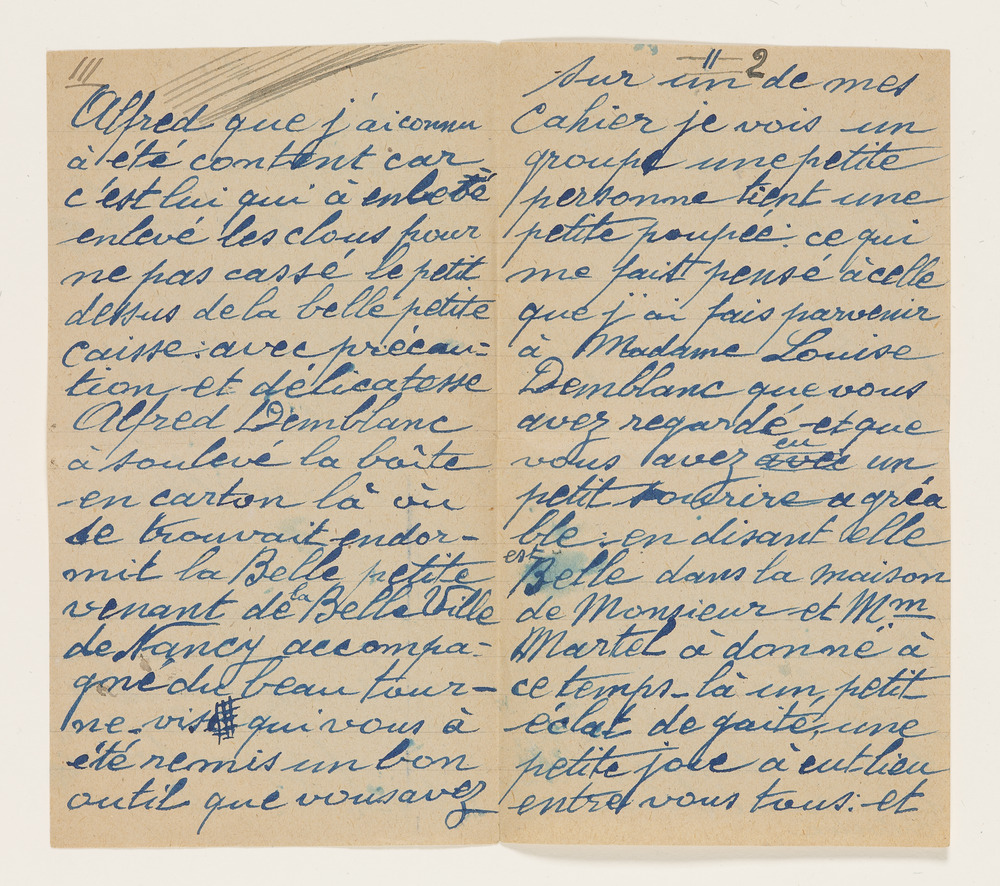 III
Alfred que j'ai connu
à été content car
c'est lui qui à enbeté
enlevé les clous pour
ne pas cassé le petit
dessus de la belle petite
caisse: avec précau-
tion et délicatesse
Alfred Demblanc
à soulevé la boîte
en carton là où
se trouvait endor-
mit la Belle petite
venant de la Belle Ville
de Nancy accompa-
gné du beau tour-
ne-vis qui vous à
été remis un bon
outil que vous avez
II 2
sur un de mes
Cahier je vois un
groupe une petite
personne tient une
petite poupée: ce qui
me fait pensé à celle
que j'ai fais parvenir
à Madame Louise
Demblanc que vous
avez regardé et que
vous avez avec eu un
petit sourire agréa
ble: en disant elle
est Belle dans la maison
de Monsieur et Mm
Martel à donné à
ce temps-là un petit
éclat de gaité, une
petite joie à eut lieu
entre vous tous: et